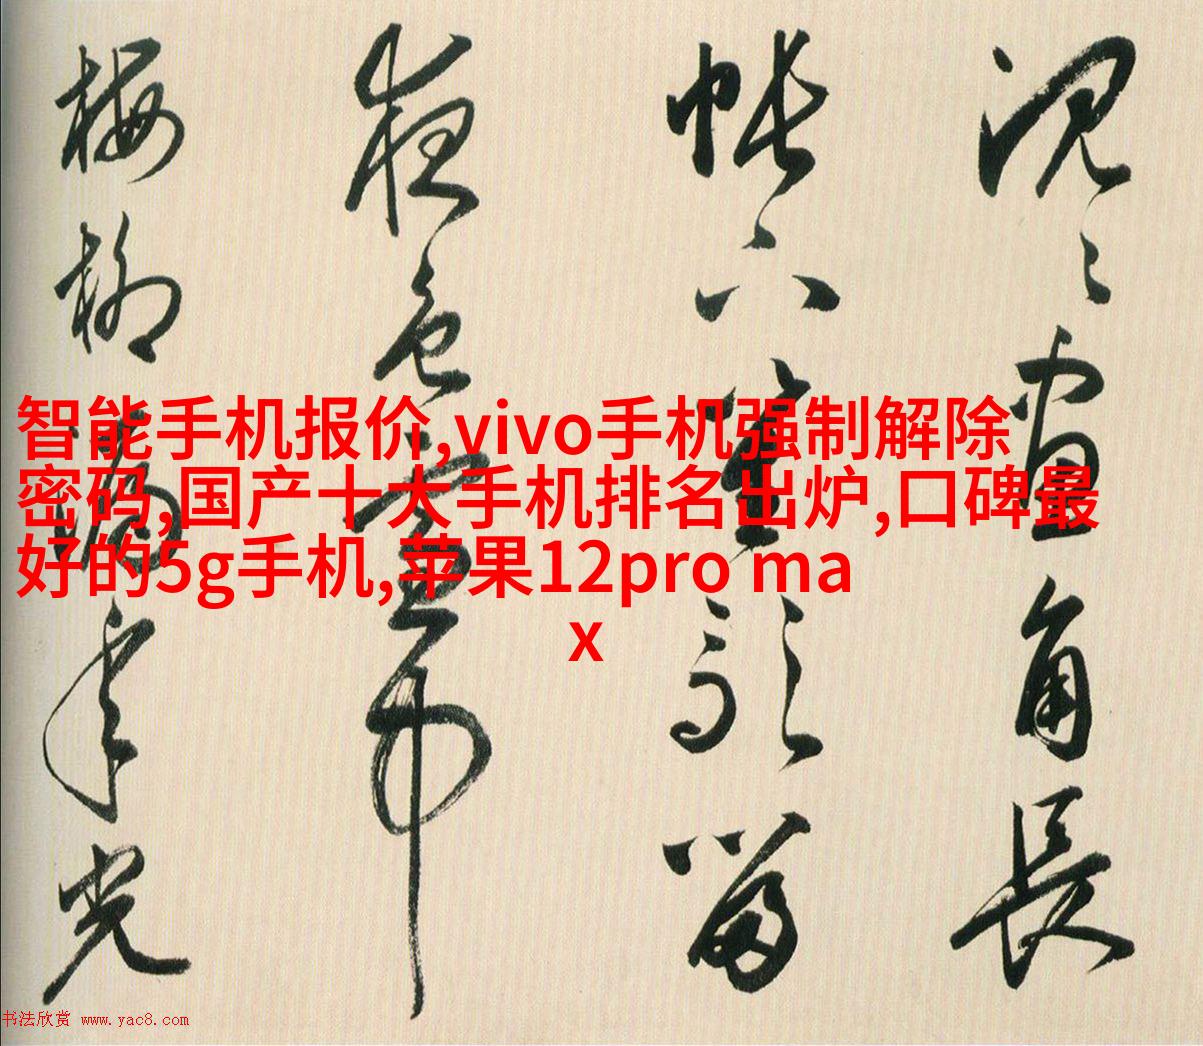 智能手机报价,vivo手机强制解除
密码,国产十大手机排名出炉,口碑最
好的5g手机,苹果12pro ma
x
沉〻畫角長
帳六軍 留
夜色
梅柳 年光
书法欣赏 www.yac8.com